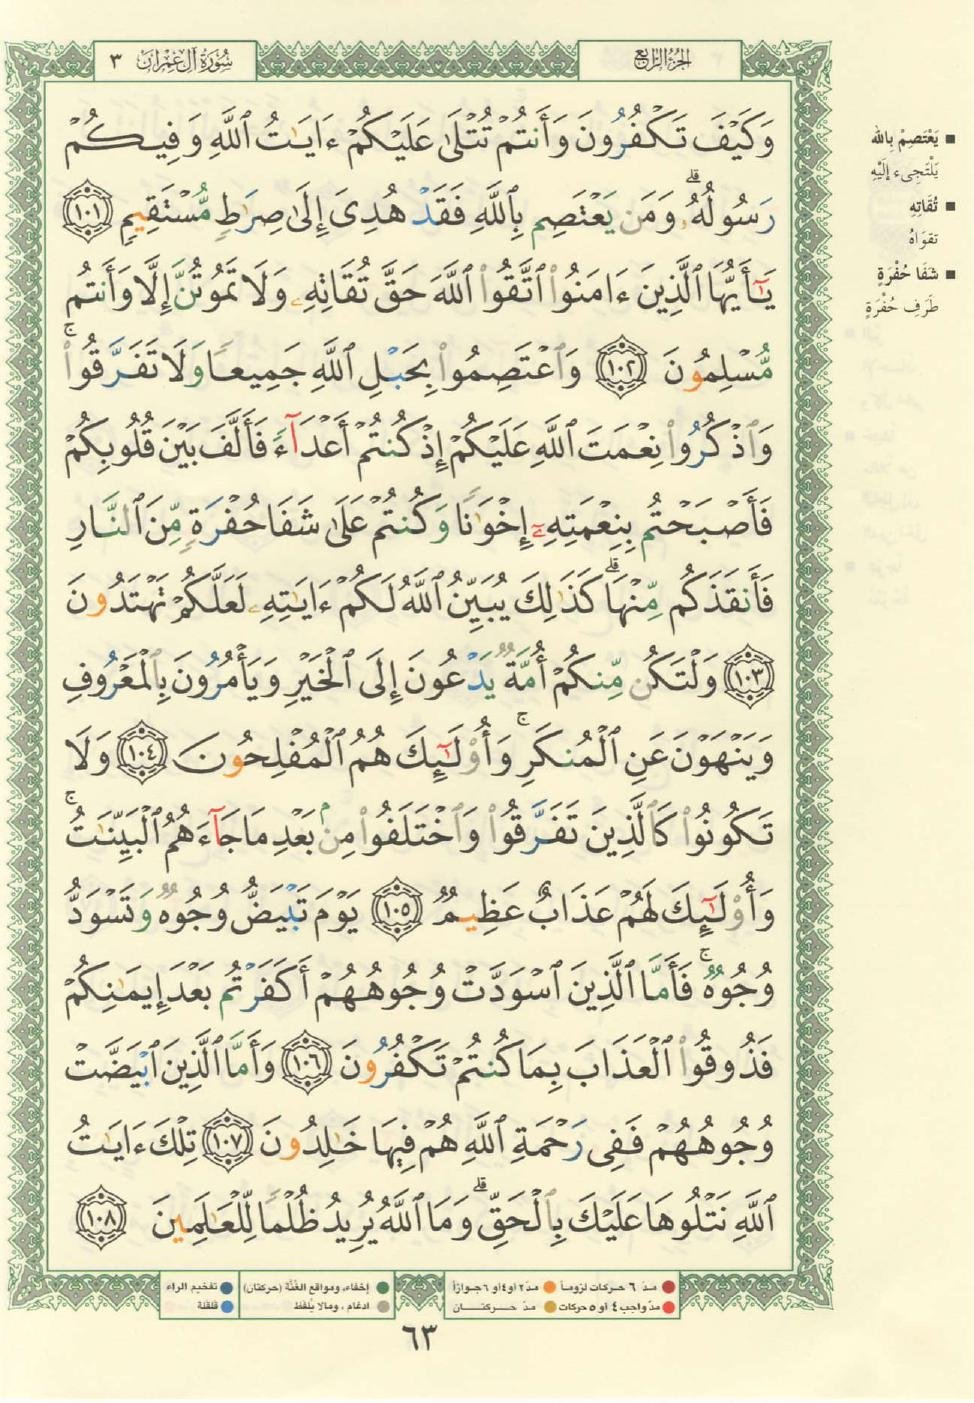 سُورَةُ آلِ عِمْرَان ٣
الجُزْءُ الرَّابِع
وَكَيْفَ تَكْفُرُونَ وَأَنتُمْ تُتْلَىٰ عَلَيْكُمْ ءَايَـٰتُ ٱللَّهِ وَفِيكُمْ
رَسُولُهُۥ ۗ وَمَن يَعْتَصِم بِٱللَّهِ فَقَدْ هُدِىَ إِلَىٰ صِرَٰطٍ مُّسْتَقِيمٍ ١٠١
يَـٰٓأَيُّهَا ٱلَّذِينَ ءَامَنُوا۟ ٱتَّقُوا۟ ٱللَّهَ حَقَّ تُقَاتِهِۦ وَلَا تَمُوتُنَّ إِلَّا وَأَنتُم
مُّسْلِمُونَ ١٠٢ وَٱعْتَصِمُوا۟ بِحَبْلِ ٱللَّهِ جَمِيعًا وَلَا تَفَرَّقُوا۟ ۚ
وَٱذْكُرُوا۟ نِعْمَتَ ٱللَّهِ عَلَيْكُمْ إِذْ كُنتُمْ أَعْدَآءً فَأَلَّفَ بَيْنَ قُلُوبِكُمْ
فَأَصْبَحْتُم بِنِعْمَتِهِۦٓ إِخْوَٰنًا وَكُنتُمْ عَلَىٰ شَفَا حُفْرَةٍ مِّنَ ٱلنَّارِ
فَأَنقَذَكُم مِّنْهَا ۗ كَذَٰلِكَ يُبَيِّنُ ٱللَّهُ لَكُمْ ءَايَـٰتِهِۦ لَعَلَّكُمْ تَهْتَدُونَ
١٠٣ وَلْتَكُن مِّنكُمْ أُمَّةٌ يَدْعُونَ إِلَى ٱلْخَيْرِ وَيَأْمُرُونَ بِٱلْمَعْرُوفِ
وَيَنْهَوْنَ عَنِ ٱلْمُنكَرِ ۚ وَأُو۟لَـٰٓئِكَ هُمُ ٱلْمُفْلِحُونَ ١٠٤ وَلَا
تَكُونُوا۟ كَٱلَّذِينَ تَفَرَّقُوا۟ وَٱخْتَلَفُوا۟ مِنۢ بَعْدِ مَا جَآءَهُمُ ٱلْبَيِّنَـٰتُ ۚ
وَأُو۟لَـٰٓئِكَ لَهُمْ عَذَابٌ عَظِيمٌ ١٠٥ يَوْمَ تَبْيَضُّ وُجُوهٌ وَتَسْوَدُّ
وُجُوهٌ ۚ فَأَمَّا ٱلَّذِينَ ٱسْوَدَّتْ وُجُوهُهُمْ أَكَفَرْتُم بَعْدَ إِيمَـٰنِكُمْ
فَذُوقُوا۟ ٱلْعَذَابَ بِمَا كُنتُمْ تَكْفُرُونَ ١٠٦ وَأَمَّا ٱلَّذِينَ ٱبْيَضَّتْ
وُجُوهُهُمْ فَفِى رَحْمَةِ ٱللَّهِ هُمْ فِيهَا خَـٰلِدُونَ ١٠٧ تِلْكَ ءَايَـٰتُ
ٱللَّهِ نَتْلُوهَا عَلَيْكَ بِٱلْحَقِّ ۗ وَمَا ٱللَّهُ يُرِيدُ ظُلْمًا لِّلْعَـٰلَمِينَ ١٠٨
يَعْتَصِمْ بِاللهِ
يَلْتَجِىء إلَيْهِ
تُقَاتِهِ
تقوَاهُ
شَفَا حُفْرَةٍ
طَرَفِ حُفْرَةٍ
مدّ ٦ حركات لزوماً
مدّ ٢ أو ٤ أو ٦ جوازاً
إخفاء، ومواقع الغُنَّة (حركتان)
تفخيم الراء
مدّ واجب ٤ أو ٥ حركات
مدّ حركتان
ادغام ، ومالا يُلفَظ
قلقلة
٦٣